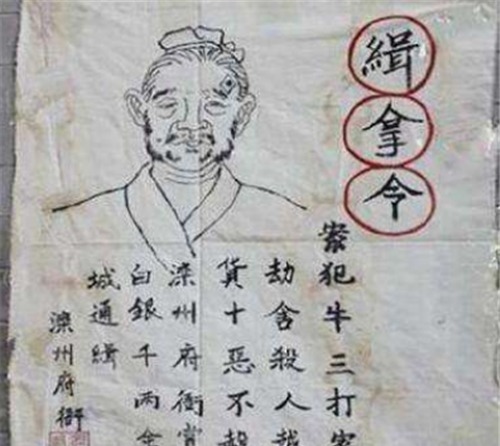 緝拿令
案犯牛三打家
劫舍殺人越
貨十惡不赦
滦州府衙賞
白銀千兩全
城通緝
滦州府衙